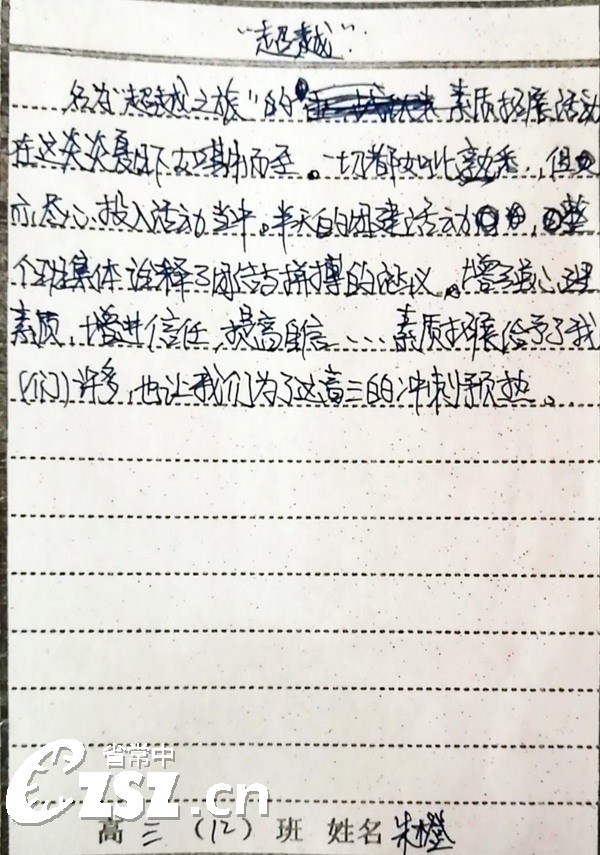 “超越”
名为“超越之旅”的素质拓展活动
在这炎炎夏日下如期而至。一切都如此熟悉,但
亦尽心投入活动当中。半天的团建活动,整
个班集体诠释了团结拼搏的意义。增强心理
素质,增进信任,提高自信……素质拓展给予了我
(们)许多,也让我们为了这高三的冲刺预热。
省常中
CZSZ.cn
高三(12)班 姓名 朱橙